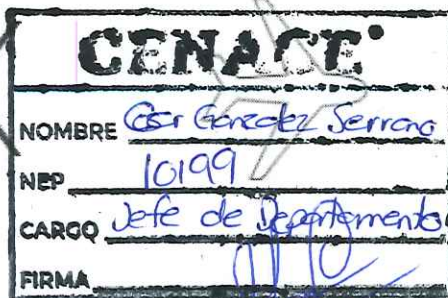 CENACE
NOMBRE Cesar Gonzalez Serrano
NEP 10199
CARGO Jefe de Departamento
FIRMA